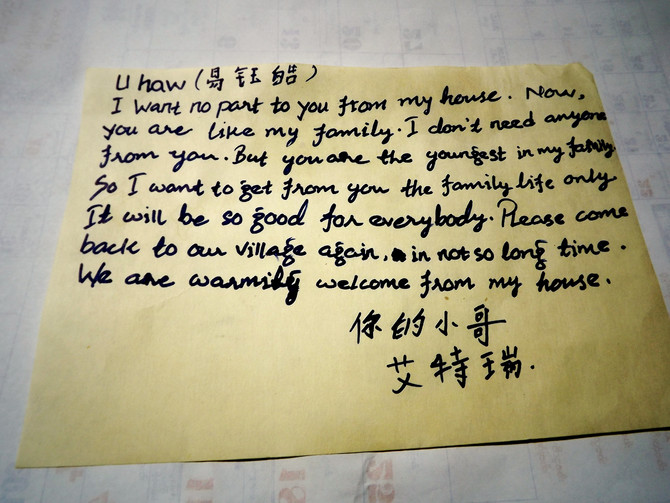 U haw (易钰皓)
I want no part to you from my house. Now,
you are like my family. I don't need anyone
from you. But you are the youngest in my family
So I want to get from you the family life only
It will be so good for everybody. Please come
back to our village again, in not so long time.
We are warmily welcome from my house.
你的小哥
艾特瑞.